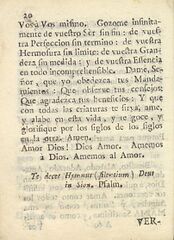 20
Vos à Vos mismo. Gozome infinita-
mente de vuestro Ser sin fin: de vues-
tra Perfeccion sin termino: de vuestra
Hermosura sin limite: de vuestra Gran-
deza sin medida: y de vuestra Essencia
en todo incomprehensible. Dame, Se-
ñor, que yo obedezca tus Manda-
mientos: Que observe tus consejos:
Que agradezca tus beneficios: Y que
con todas las criaturas te sirva, ame,
y alabe en esta vida, y te goce, y
glorifique por los siglos de los siglos
en la otra. Amen.
Amor Dios! Dios Amor. Amemos
à Dios. Amemos al Amor.
Te decet Hymnus (silentium) Deus
in Sion. Psalm.
VER-